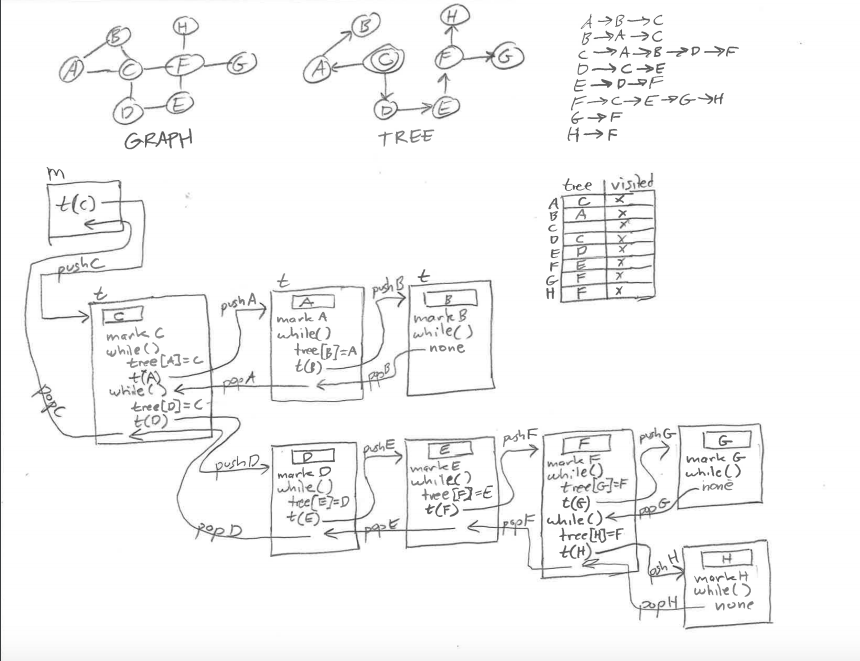 B
H
A
C
F
G
D
E
GRAPH
B
H
A
C
F
G
D
E
TREE
A→B→C
B→A→C
C→A→B→D→F
D→C→E
E→D→F
F→C→E→G→H
G→F
H→F
tree visited
A C x
B A x
C x
D C x
E D x
F E x
G F x
H F x
m
t(c)
pushC
popC
t
C
mark C
while()
tree[A]=C
t(A)
while()
tree[D]=C
t(D)
pushA
popA
t
A
mark A
while()
tree[B]=A
t(B)
pushB
popB
t
B
mark B
while()
none
pushD
popD
D
mark D
while()
tree[E]=D
t(E)
pushE
popE
E
mark E
while()
tree[F]=E
t(F)
pushF
popF
F
mark F
while()
tree[G]=F
t(G)
while()
tree[H]=F
t(H)
pushG
popG
G
mark G
while()
none
pushH
popH
H
mark H
while()
none